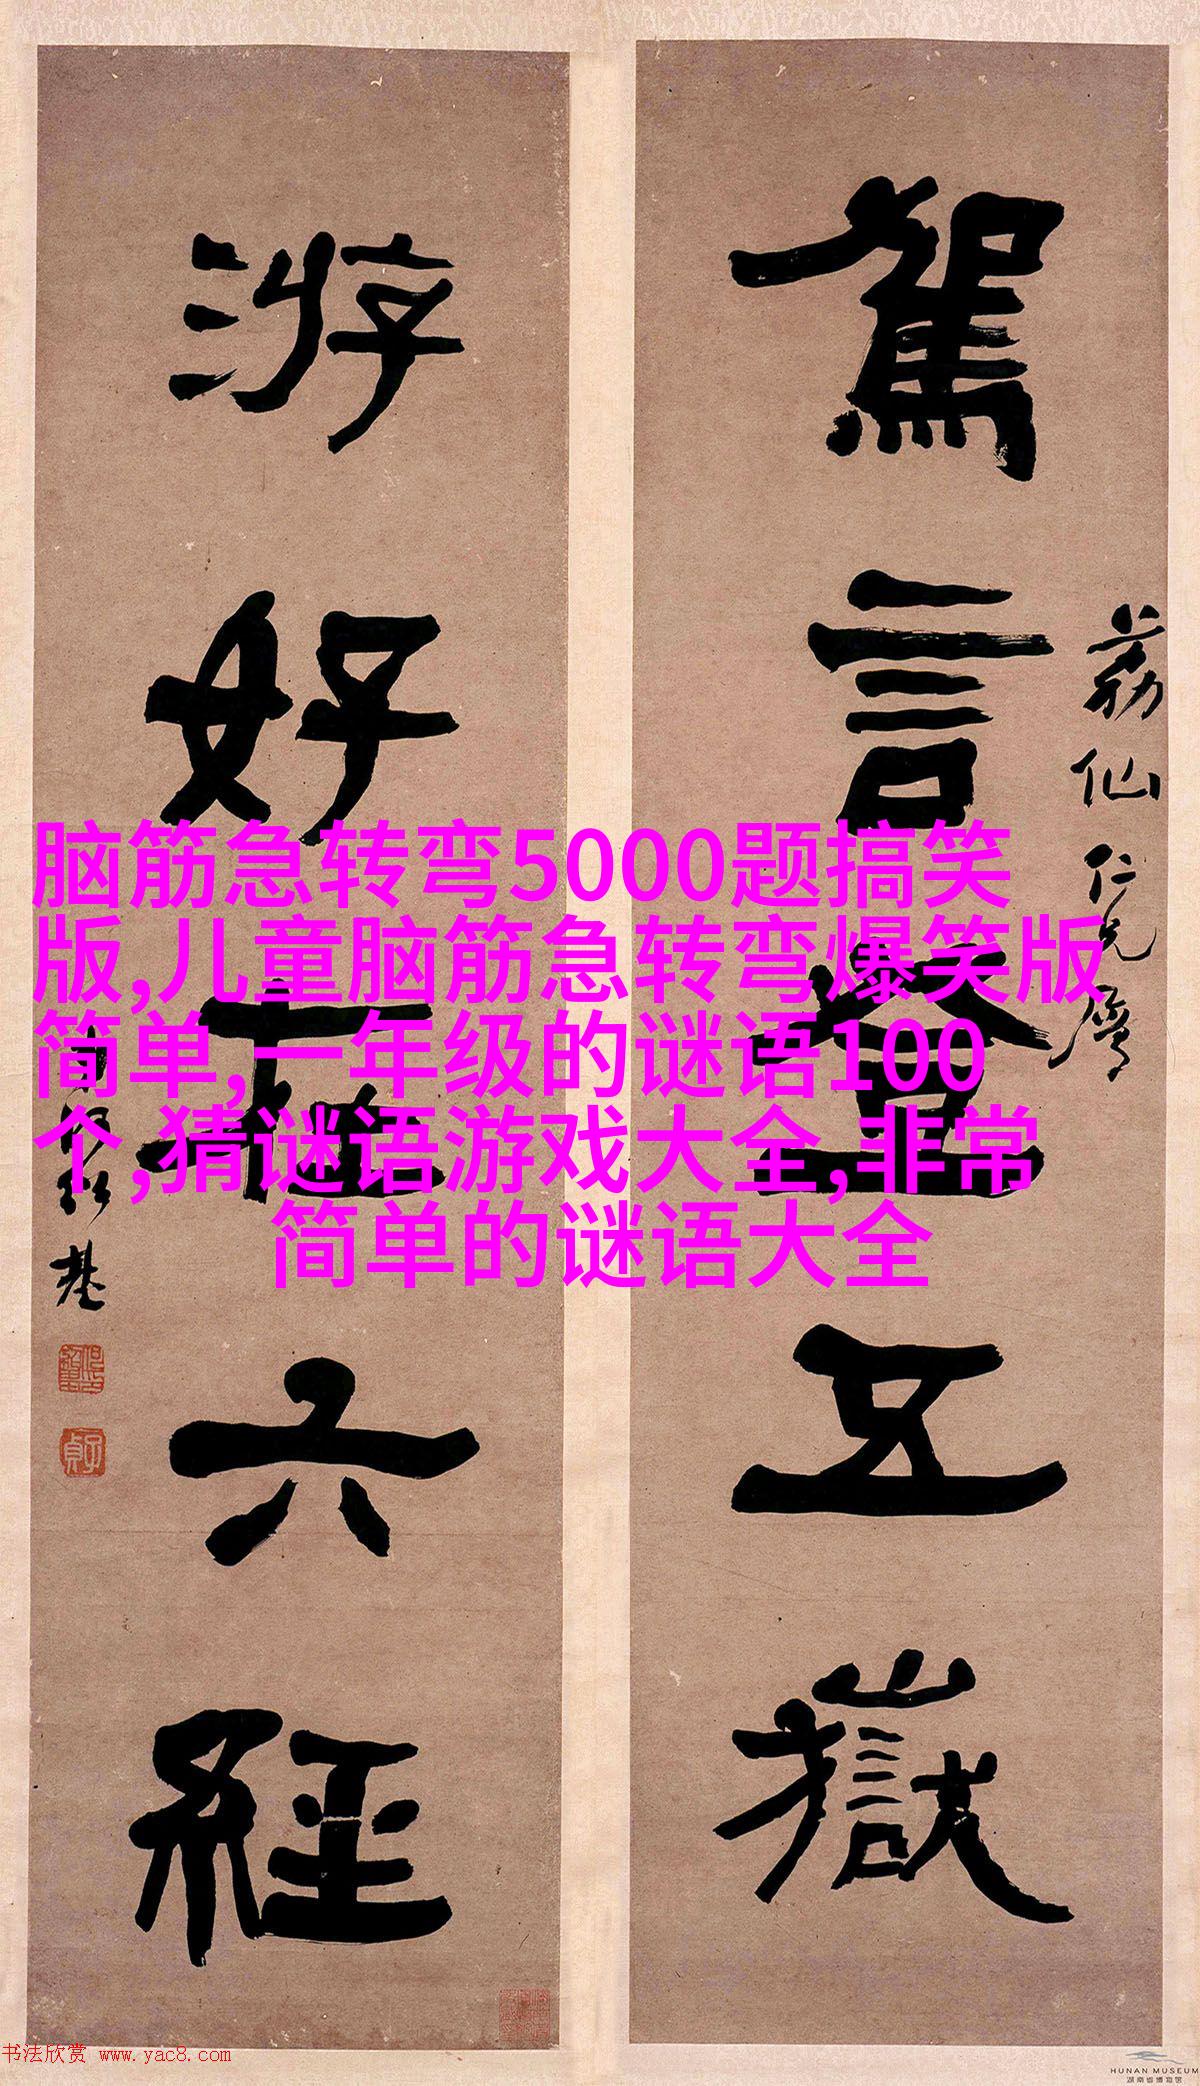 駕言登五嶽
荔仙仁兄属
游好在六經
何紹基
脑筋急转弯5000题搞笑
版,儿童脑筋急转弯爆笑版
简单,一年级的谜语100
个,猜谜语游戏大全,非常
简单的谜语大全
书法欣赏 www.yac8.com
HUNAN MUSEUM
湖南省博物馆